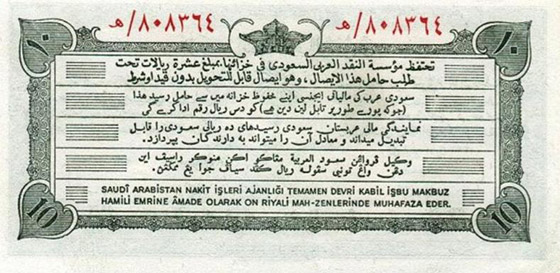 ه/٨٠٨٣٦٤ ه/٨٠٨٣٦٤
١٠ ١٠
تحتفظ مؤسسة النقد العربى السعودى فى خزائنها، بمبلغ عشرة ريالات تحت
طلب حامل هذا الايصال، وهو ايصال قابل للتحويل بدون قيد أو شرط
سعودی عرب کی مالیاتی ایجنسی اپنے محفوظ خزانہ میں سے حامل رسید هذا
(جوکہ پورے طور پر قابل لین دین هے) کو دس ریال رقم ادا کرے گی
نمایندگی مالی عربستان سعودی رسیدهای ده ریالی سعودی را قابل
تبدیل میداند و معادل آن را میتواند به دارنده گان بپردازد.
وكيل سعود العربية اكن واسيف اين
ريال كند
SAUDÎ ARABİSTAN NAKİT İŞLERİ AJANLIĞI TEMAMEN DEVRİ KABİL İŞBU MAKBUZ
HAMİLİ EMRİNE ÂMADE OLARAK ON RİYALİ MAH-ZENLERİNDE MUHAFAZA EDER.
10 10